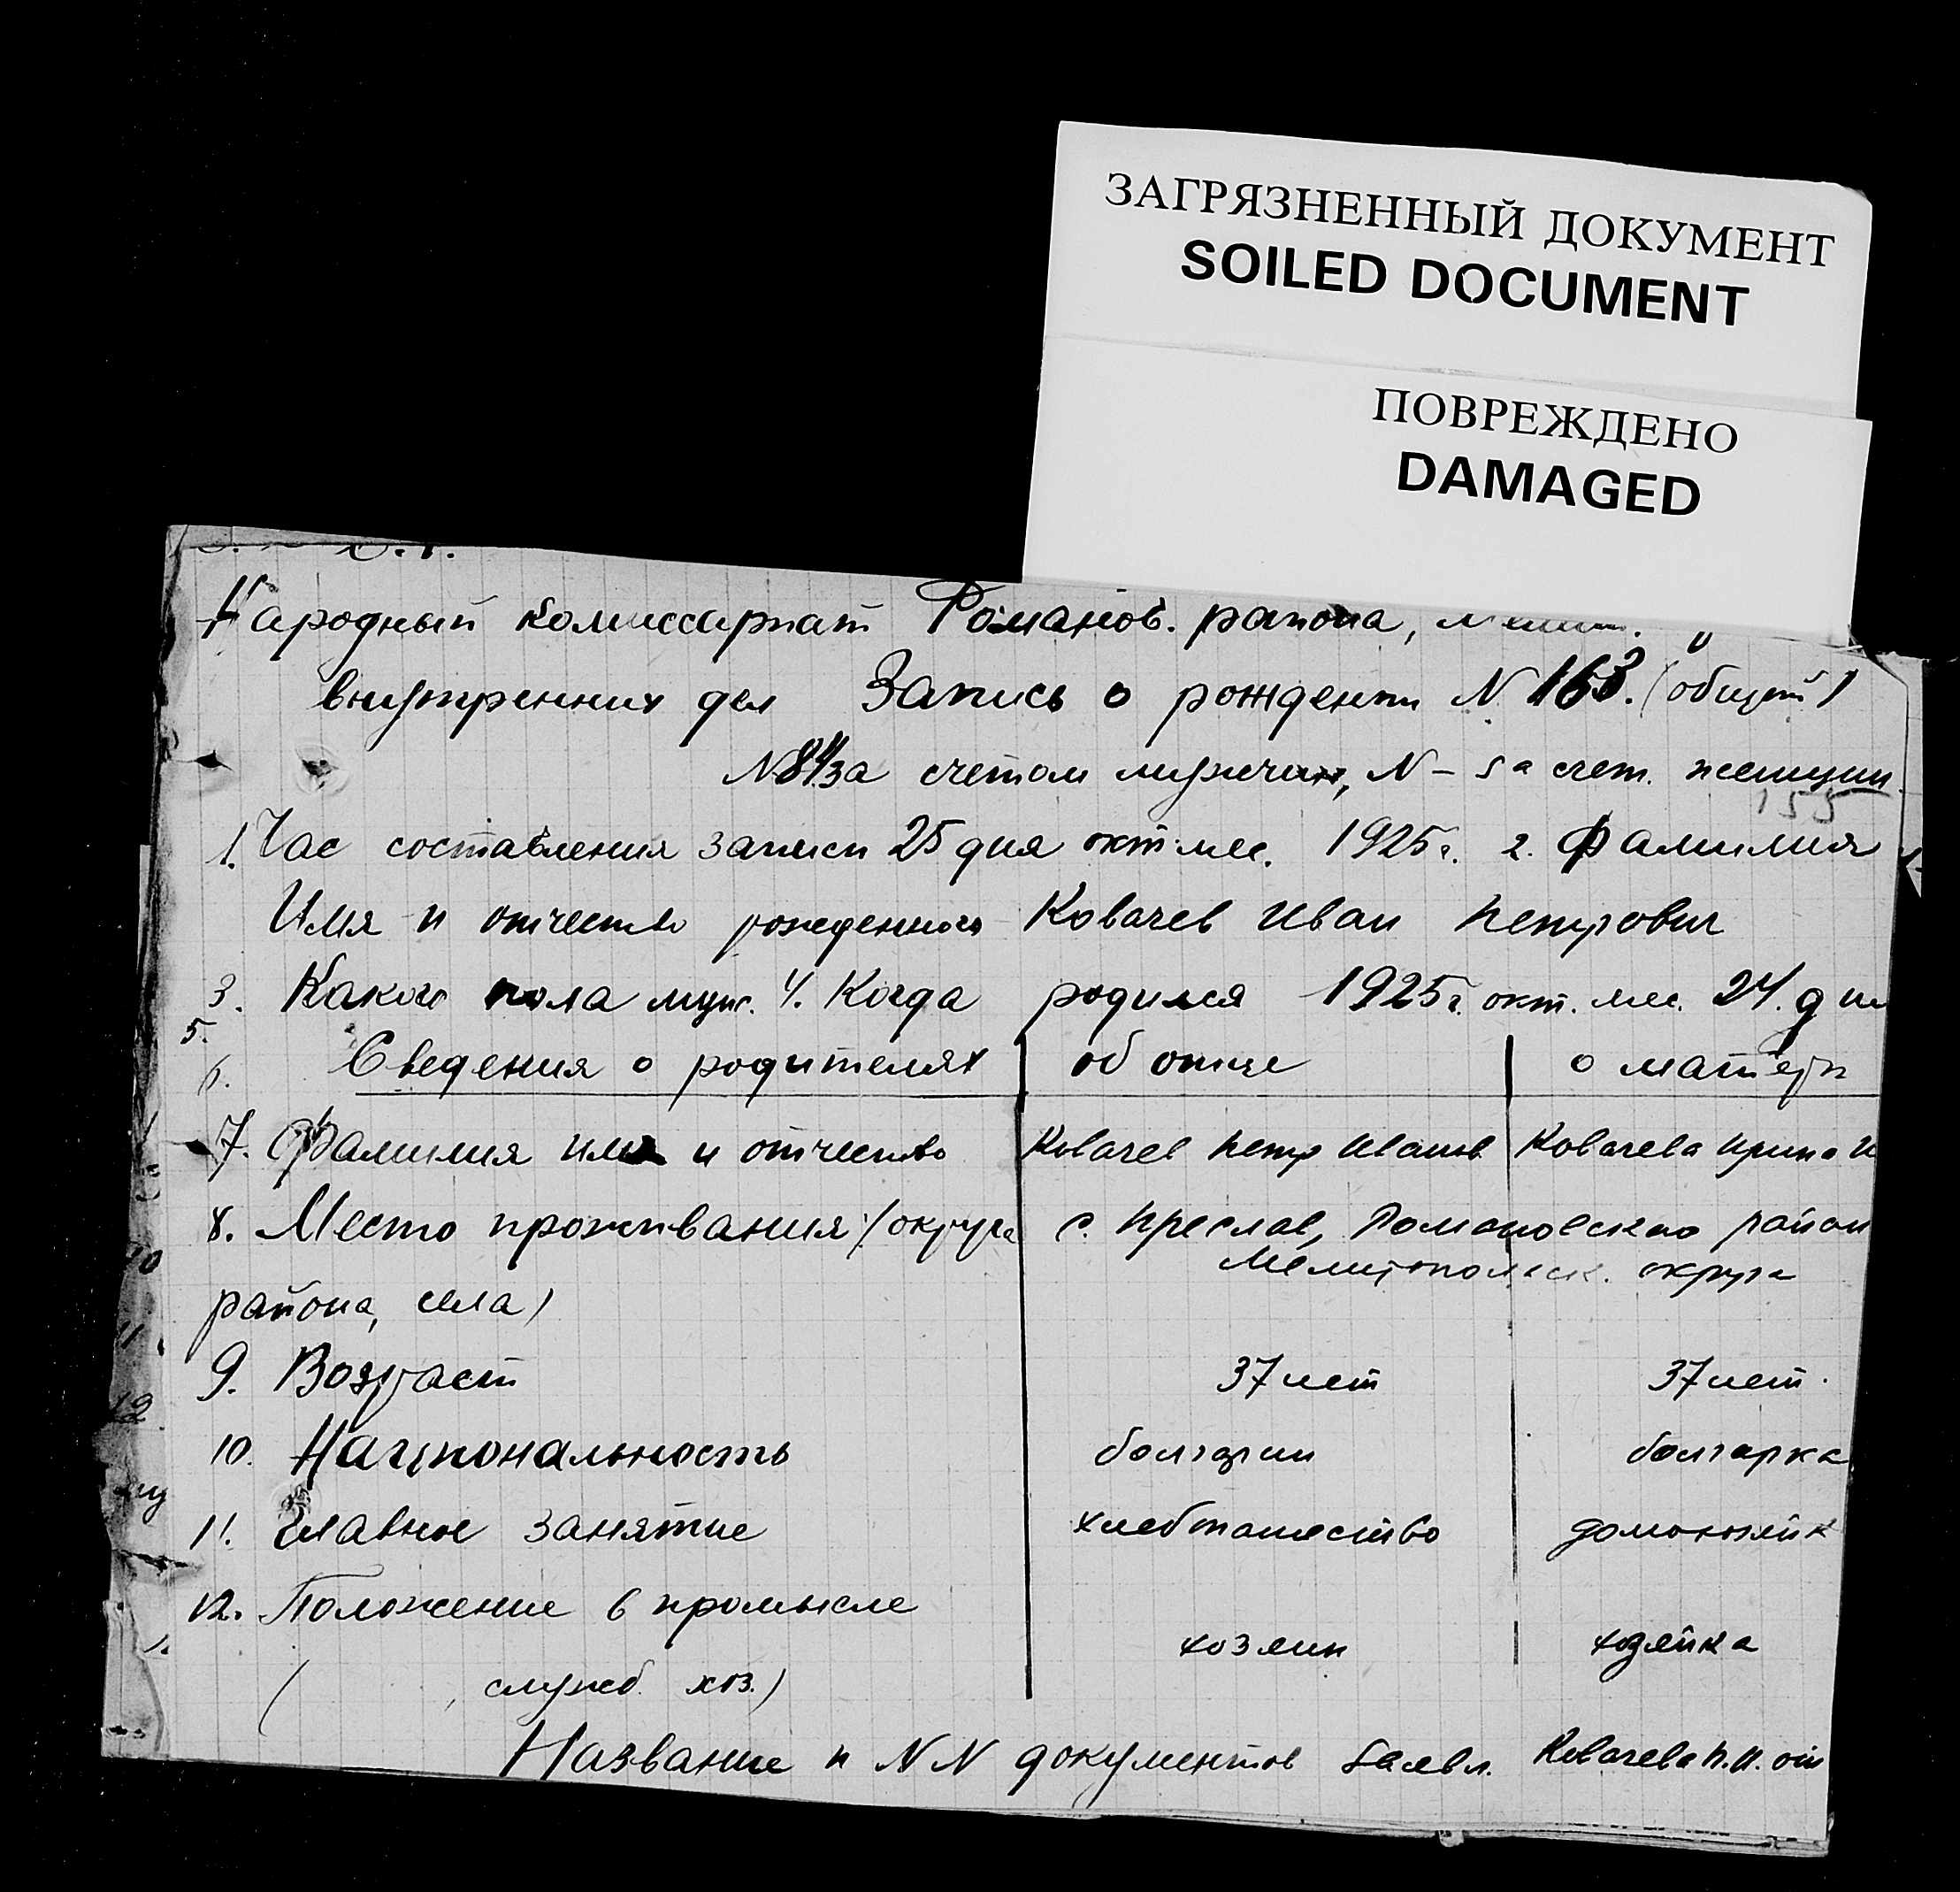 ЗАГРЯЗНЕННЫЙ ДОКУМЕНТ
SOILED DOCUMENT
ПОВРЕЖДЕНО
DAMAGED
Народный комиссариат Романов. района,
внутренних дел Запись о рождении N 163. (общий)
N 84 за счетом мужчин, N – за счет. женщин
155
1. Час составления записи 25 дня окт. мес. 1925 г. 2. Фамилия
Имя и отчество рожденного Ковачев Иван Петрович
3. Какого пола муж. 4. Когда родился 1925 г. окт. мес. 24. дня
5.
6. Сведения о родителях об отце о матери
7. Фамилия имя и отчество Ковачев Петр Иванов. Ковачева Ирина И
8. Место проживания (округа с. Преслав, Романовского район
Мелитопольск. округа
района, села)
9. Возраст 37 лет 37 лет.
10. Национальность болгарин болгарка
11. Главное занятие хлебопашество домохозяйк
12. Положение в промысле
хозяин хозяйка
( служб. хоз.)
Название и NN документов Заявл. Ковачева П. И. от